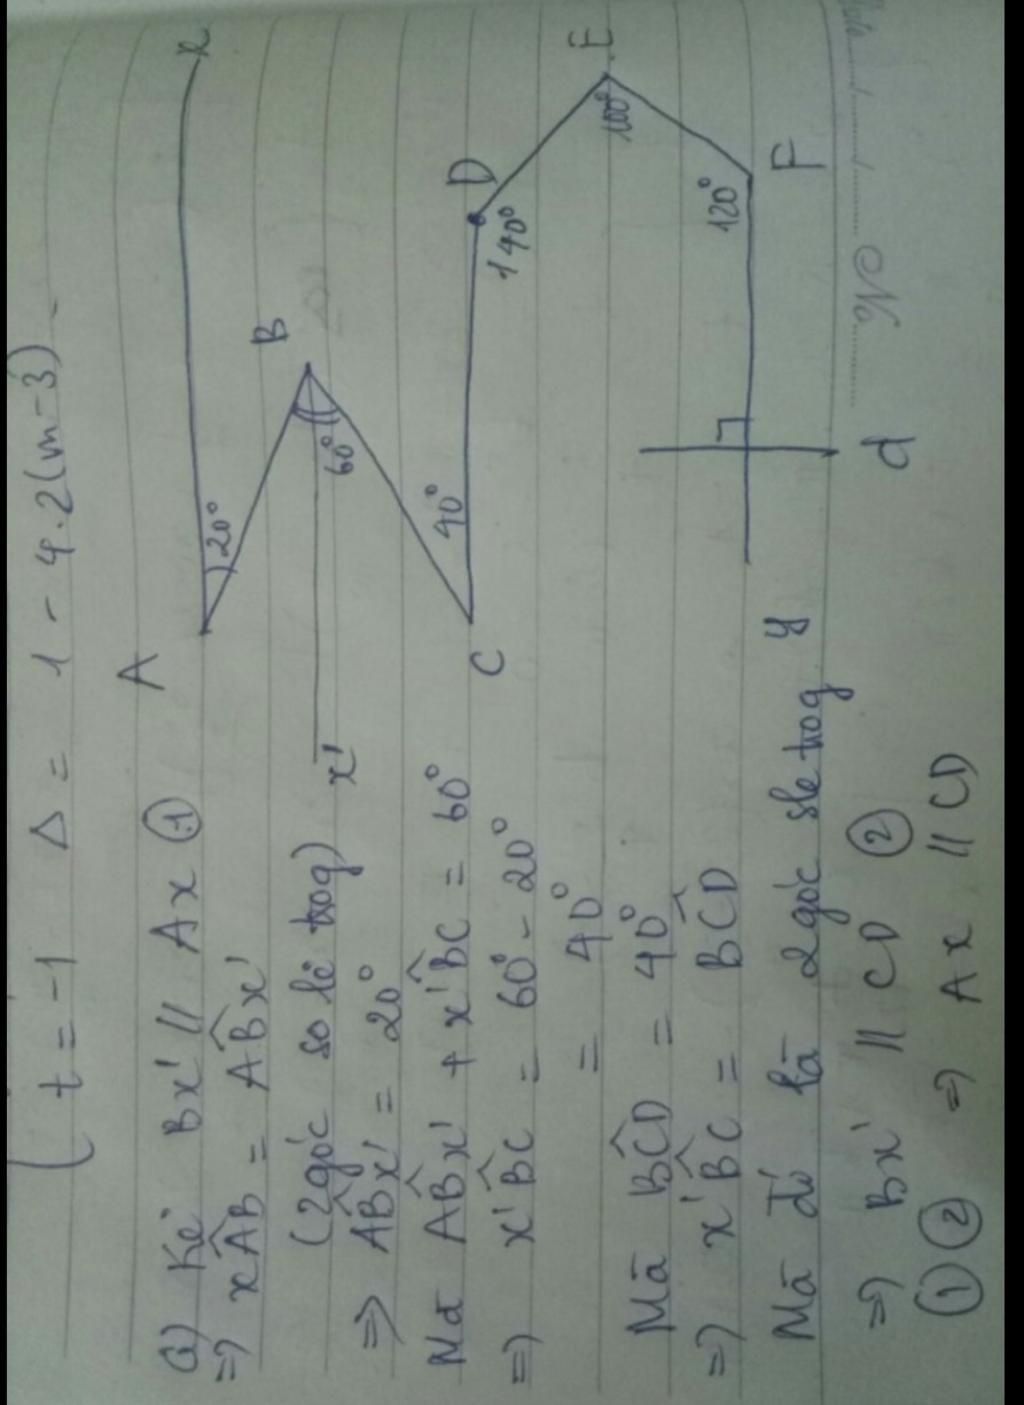 t = -1 Δ = 1 - 4.2(m-3)
a) Kẻ Bx' // Ax ①
=> xÂB = AB̂x'
(2 góc so le trog)
=> AB̂x' = 20°
Mà AB̂x' + x'B̂C = 60°
=> x'B̂C = 60° - 20°
= 40°
Mà BĈD = 40°
=> x'B̂C = BĈD
Mà đó là 2 góc sle trog
=> Bx' // CD ②
① ② => Ax // CD
A
x
20°
B
60°
x'
40°
C
D
140°
E
100°
120°
F
y
d